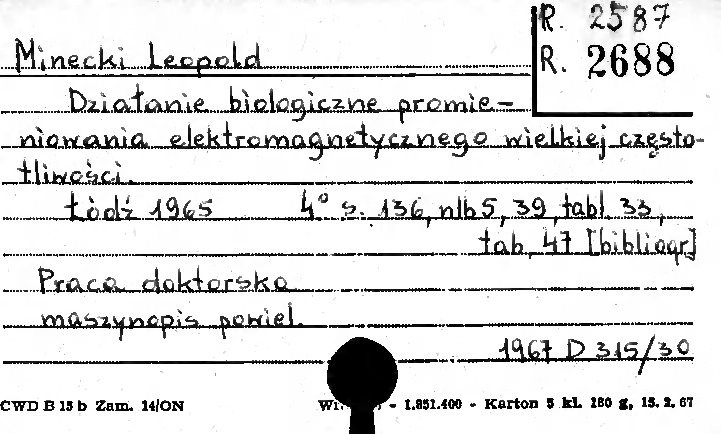 R. 2587
Minecki Leopold R. 2688
Działanie biologiczne promie-
niowania elektromagnetycznego wielkiej często-
tliwości.
Łódź 1965 4° s. 136, nlb 5, 39, tabl. 33,
tab. 47 [bibliogr]
Praca doktorska
maszynopis powiel.
1967 D 315/30
CWD B 15 b Zam. 14/ON - 1.851.400 - Karton 5 kl. 180 g, 15. 2. 67